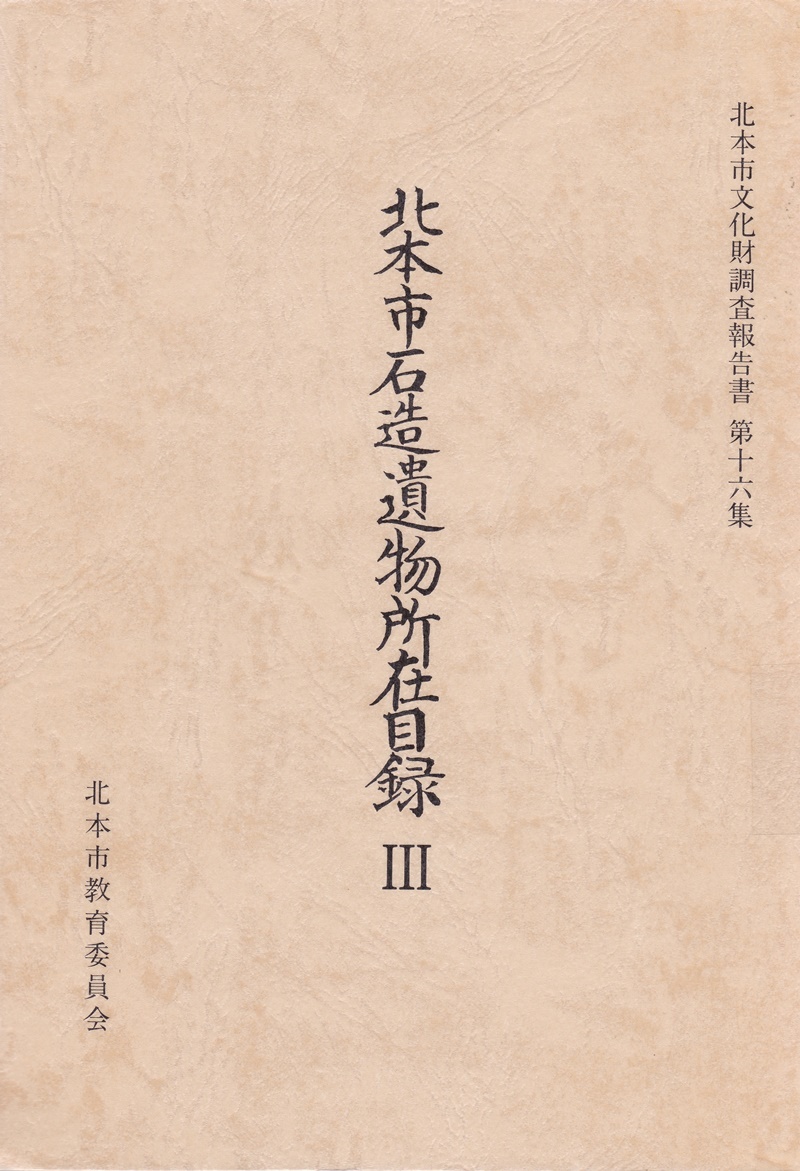 北本市文化財調査報告書 第十六集
北本市石造遺物所在目録 III
北本市教育委員会